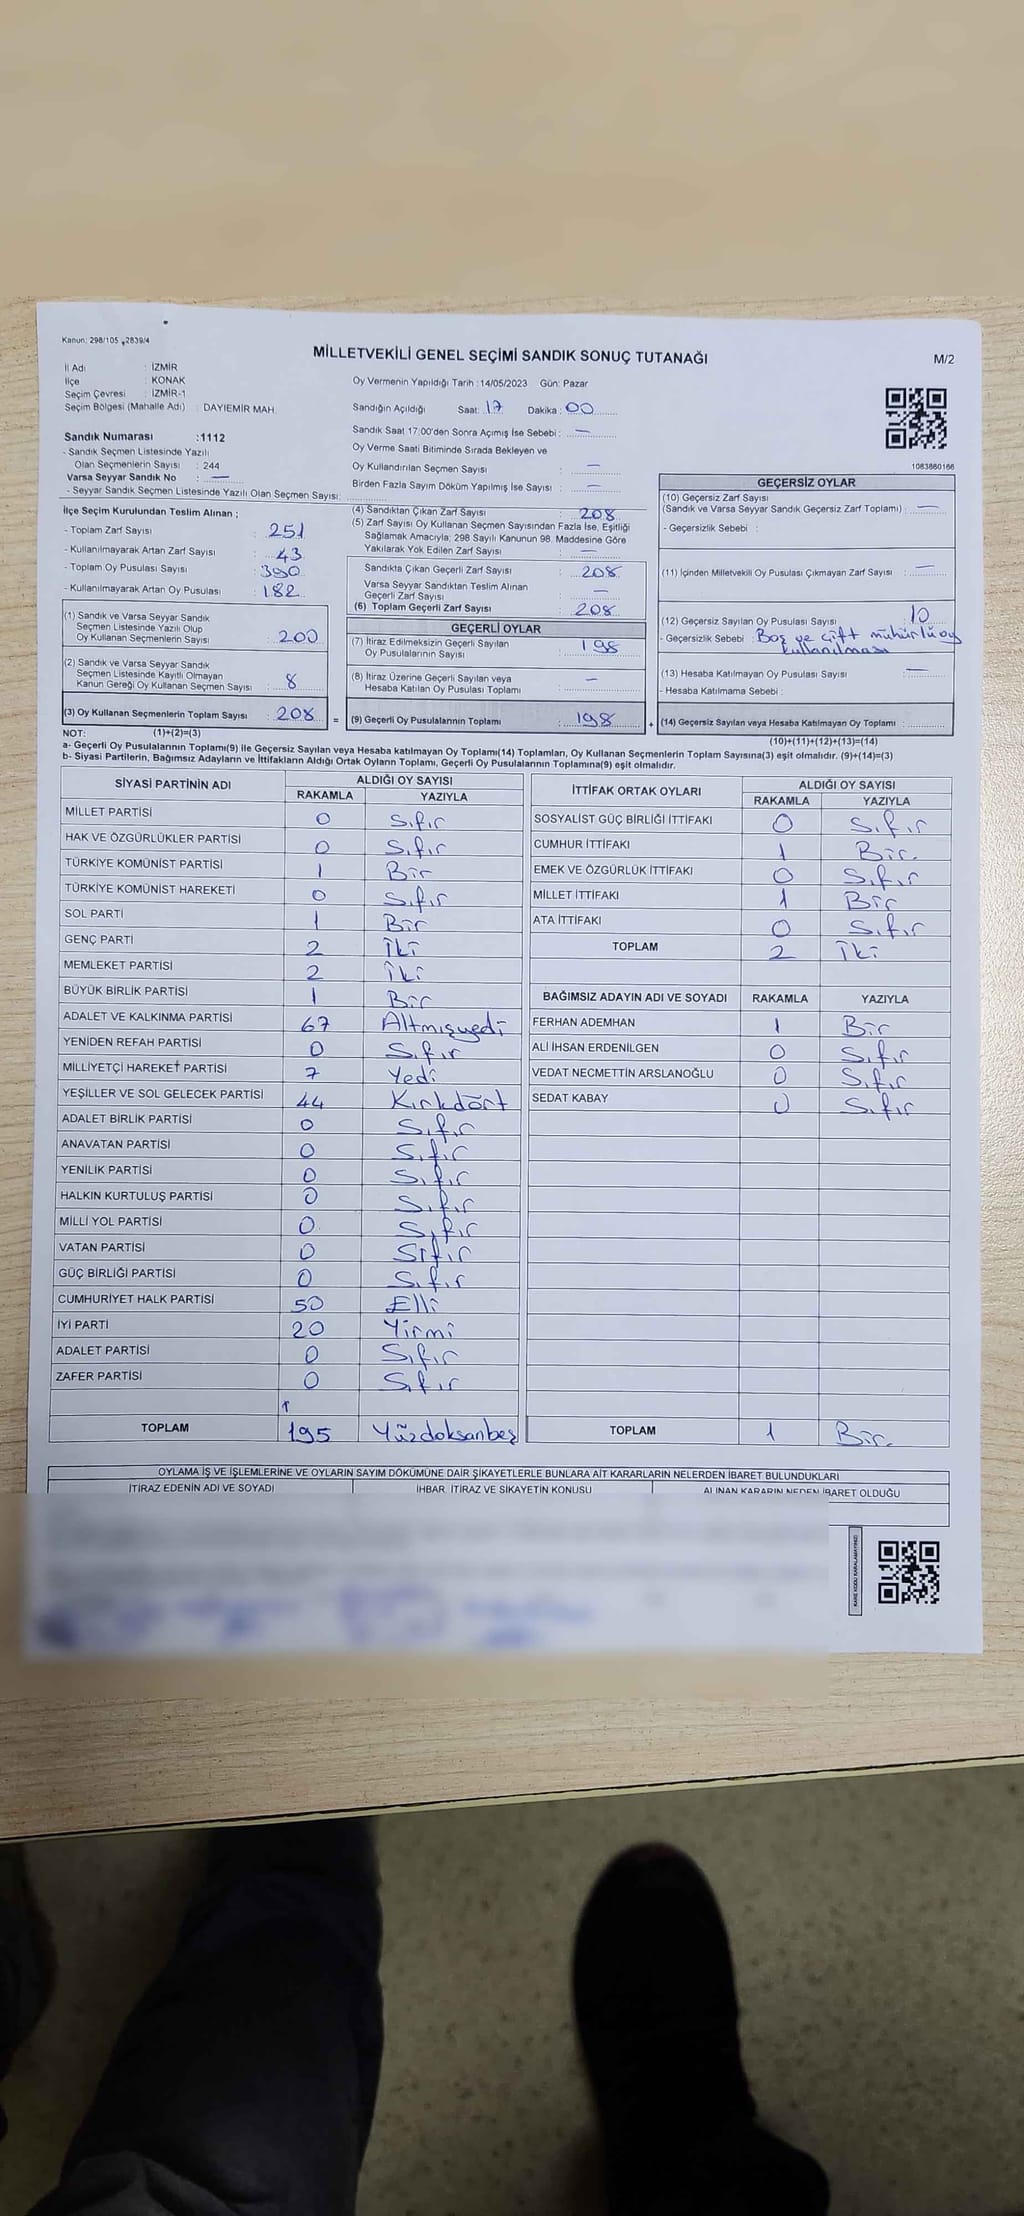 Kanun: 298/105 , 2839/4
MİLLETVEKİLİ GENEL SEÇİMİ SANDIK SONUÇ TUTANAĞI
M/2
İl Adı : İZMİR
İlçe : KONAK
Seçim Çevresi : İZMİR-1
Seçim Bölgesi (Mahalle Adı) : DAYIEMİR MAH.
Sandık Numarası :1112
- Sandık Seçmen Listesinde Yazılı
Olan Seçmenlerin Sayısı : 244
Varsa Seyyar Sandık No : —
- Seyyar Sandık Seçmen Listesinde Yazılı Olan Seçmen Sayısı:
Oy Vermenin Yapıldığı Tarih :14/05/2023 Gün: Pazar
Sandığın Açıldığı Saat: 17 Dakika : 00
Sandık Saat 17:00'den Sonra Açımış İse Sebebi : —
Oy Verme Saati Bitiminde Sırada Bekleyen ve
Oy Kullandırılan Seçmen Sayısı : —
Birden Fazla Sayım Döküm Yapılmış İse Sayısı : —
1083860166
İlçe Seçim Kurulundan Teslim Alınan ;
- Toplam Zarf Sayısı : 251
- Kullanılmayarak Artan Zarf Sayısı : 43
- Toplam Oy Pusulası Sayısı : 390
- Kullanılmayarak Artan Oy Pusulası : 182
(1) Sandık ve Varsa Seyyar Sandık
Seçmen Listesinde Yazılı Olup
Oy Kullanan Seçmenlerin Sayısı : 200
(2) Sandık ve Varsa Seyyar Sandık
Seçmen Listesinde Kayıtlı Olmayan
Kanun Gereği Oy Kullanan Seçmen Sayısı : 8
(3) Oy Kullanan Seçmenlerin Toplam Sayısı : 208 =
(1)+(2)=(3)
(4) Sandıktan Çıkan Zarf Sayısı : 208
(5) Zarf Sayısı Oy Kullanan Seçmen Sayısından Fazla İse, Eşitliği
Sağlamak Amacıyla; 298 Sayılı Kanunun 98. Maddesine Göre
Yakılarak Yok Edilen Zarf Sayısı : —
Sandıkta Çıkan Geçerli Zarf Sayısı : 208
Varsa Seyyar Sandıktan Teslim Alınan
Geçerli Zarf Sayısı : —
(6) Toplam Geçerli Zarf Sayısı : 208
GEÇERLİ OYLAR
(7) İtiraz Edilmeksizin Geçerli Sayılan
Oy Pusulalarının Sayısı : 198
(8) İtiraz Üzerine Geçerli Sayılan veya
Hesaba Katılan Oy Pusulası Toplamı : —
(9) Geçerli Oy Pusulalarının Toplamı : 198 +
GEÇERSİZ OYLAR
(10) Geçersiz Zarf Sayısı
(Sandık ve Varsa Seyyar Sandık Geçersiz Zarf Toplamı) : —
- Geçersizlik Sebebi :
(11) İçinden Milletvekili Oy Pusulası Çıkmayan Zarf Sayısı : —
(12) Geçersiz Sayılan Oy Pusulası Sayısı : 10
- Geçersizlik Sebebi : Boş ve çift mühürlü oy
kullanılması
(13) Hesaba Katılmayan Oy Pusulası Sayısı : —
- Hesaba Katılmama Sebebi :
(14) Geçersiz Sayılan veya Hesaba Katılmayan Oy Toplamı :
(10)+(11)+(12)+(13)=(14)
NOT:
a- Geçerli Oy Pusulalarının Toplamı(9) ile Geçersiz Sayılan veya Hesaba katılmayan Oy Toplamı(14) Toplamları, Oy Kullanan Seçmenlerin Toplam Sayısına(3) eşit olmalıdır. (9)+(14)=(3)
b- Siyasi Partilerin, Bağımsız Adayların ve İttifakların Aldığı Ortak Oyların Toplamı, Geçerli Oy Pusulalarının Toplamına(9) eşit olmalıdır.
SİYASİ PARTİNİN ADI ALDIĞI OY SAYISI
RAKAMLA YAZIYLA
MİLLET PARTİSİ 0 Sıfır
HAK VE ÖZGÜRLÜKLER PARTİSİ 0 Sıfır
TÜRKİYE KOMÜNİST PARTİSİ 1 Bir
TÜRKİYE KOMÜNİST HAREKETİ 0 Sıfır
SOL PARTİ 1 Bir
GENÇ PARTİ 2 İki
MEMLEKET PARTİSİ 2 İki
BÜYÜK BİRLİK PARTİSİ 1 Bir
ADALET VE KALKINMA PARTİSİ 67 Altmışyedi
YENİDEN REFAH PARTİSİ 0 Sıfır
MİLLİYETÇİ HAREKET PARTİSİ 7 Yedi
YEŞİLLER VE SOL GELECEK PARTİSİ 44 Kırkdört
ADALET BİRLİK PARTİSİ 0 Sıfır
ANAVATAN PARTİSİ 0 Sıfır
YENİLİK PARTİSİ 0 Sıfır
HALKIN KURTULUŞ PARTİSİ 0 Sıfır
MİLLİ YOL PARTİSİ 0 Sıfır
VATAN PARTİSİ 0 Sıfır
GÜÇ BİRLİĞİ PARTİSİ 0 Sıfır
CUMHURİYET HALK PARTİSİ 50 Elli
İYİ PARTİ 20 Yirmi
ADALET PARTİSİ 0 Sıfır
ZAFER PARTİSİ 0 Sıfır
TOPLAM 195 Yüzdoksanbeş
İTTİFAK ORTAK OYLARI ALDIĞI OY SAYISI
RAKAMLA YAZIYLA
SOSYALİST GÜÇ BİRLİĞİ İTTİFAKI 0 Sıfır
CUMHUR İTTİFAKI 1 Bir.
EMEK VE ÖZGÜRLÜK İTTİFAKI 0 Sıfır
MİLLET İTTİFAKI 1 Bir
ATA İTTİFAKI 0 Sıfır
TOPLAM 2 İki
BAĞIMSIZ ADAYIN ADI VE SOYADI RAKAMLA YAZIYLA
FERHAN ADEMHAN 1 Bir
ALİ İHSAN ERDENİLGEN 0 Sıfır
VEDAT NECMETTİN ARSLANOĞLU 0 Sıfır
SEDAT KABAY 0 Sıfır
TOPLAM 1 Bir.
OYLAMA İŞ VE İŞLEMLERİNE VE OYLARIN SAYIM DÖKÜMÜNE DAİR ŞİKAYETLERLE BUNLARA AİT KARARLARIN NELERDEN İBARET BULUNDUKLARI
İTİRAZ EDENİN ADI VE SOYADI İHBAR, İTİRAZ VE ŞİKAYETİN KONUSU ALINAN KARARIN NEDEN İBARET OLDUĞU
KARE KODU KARALAMAYINIZ!